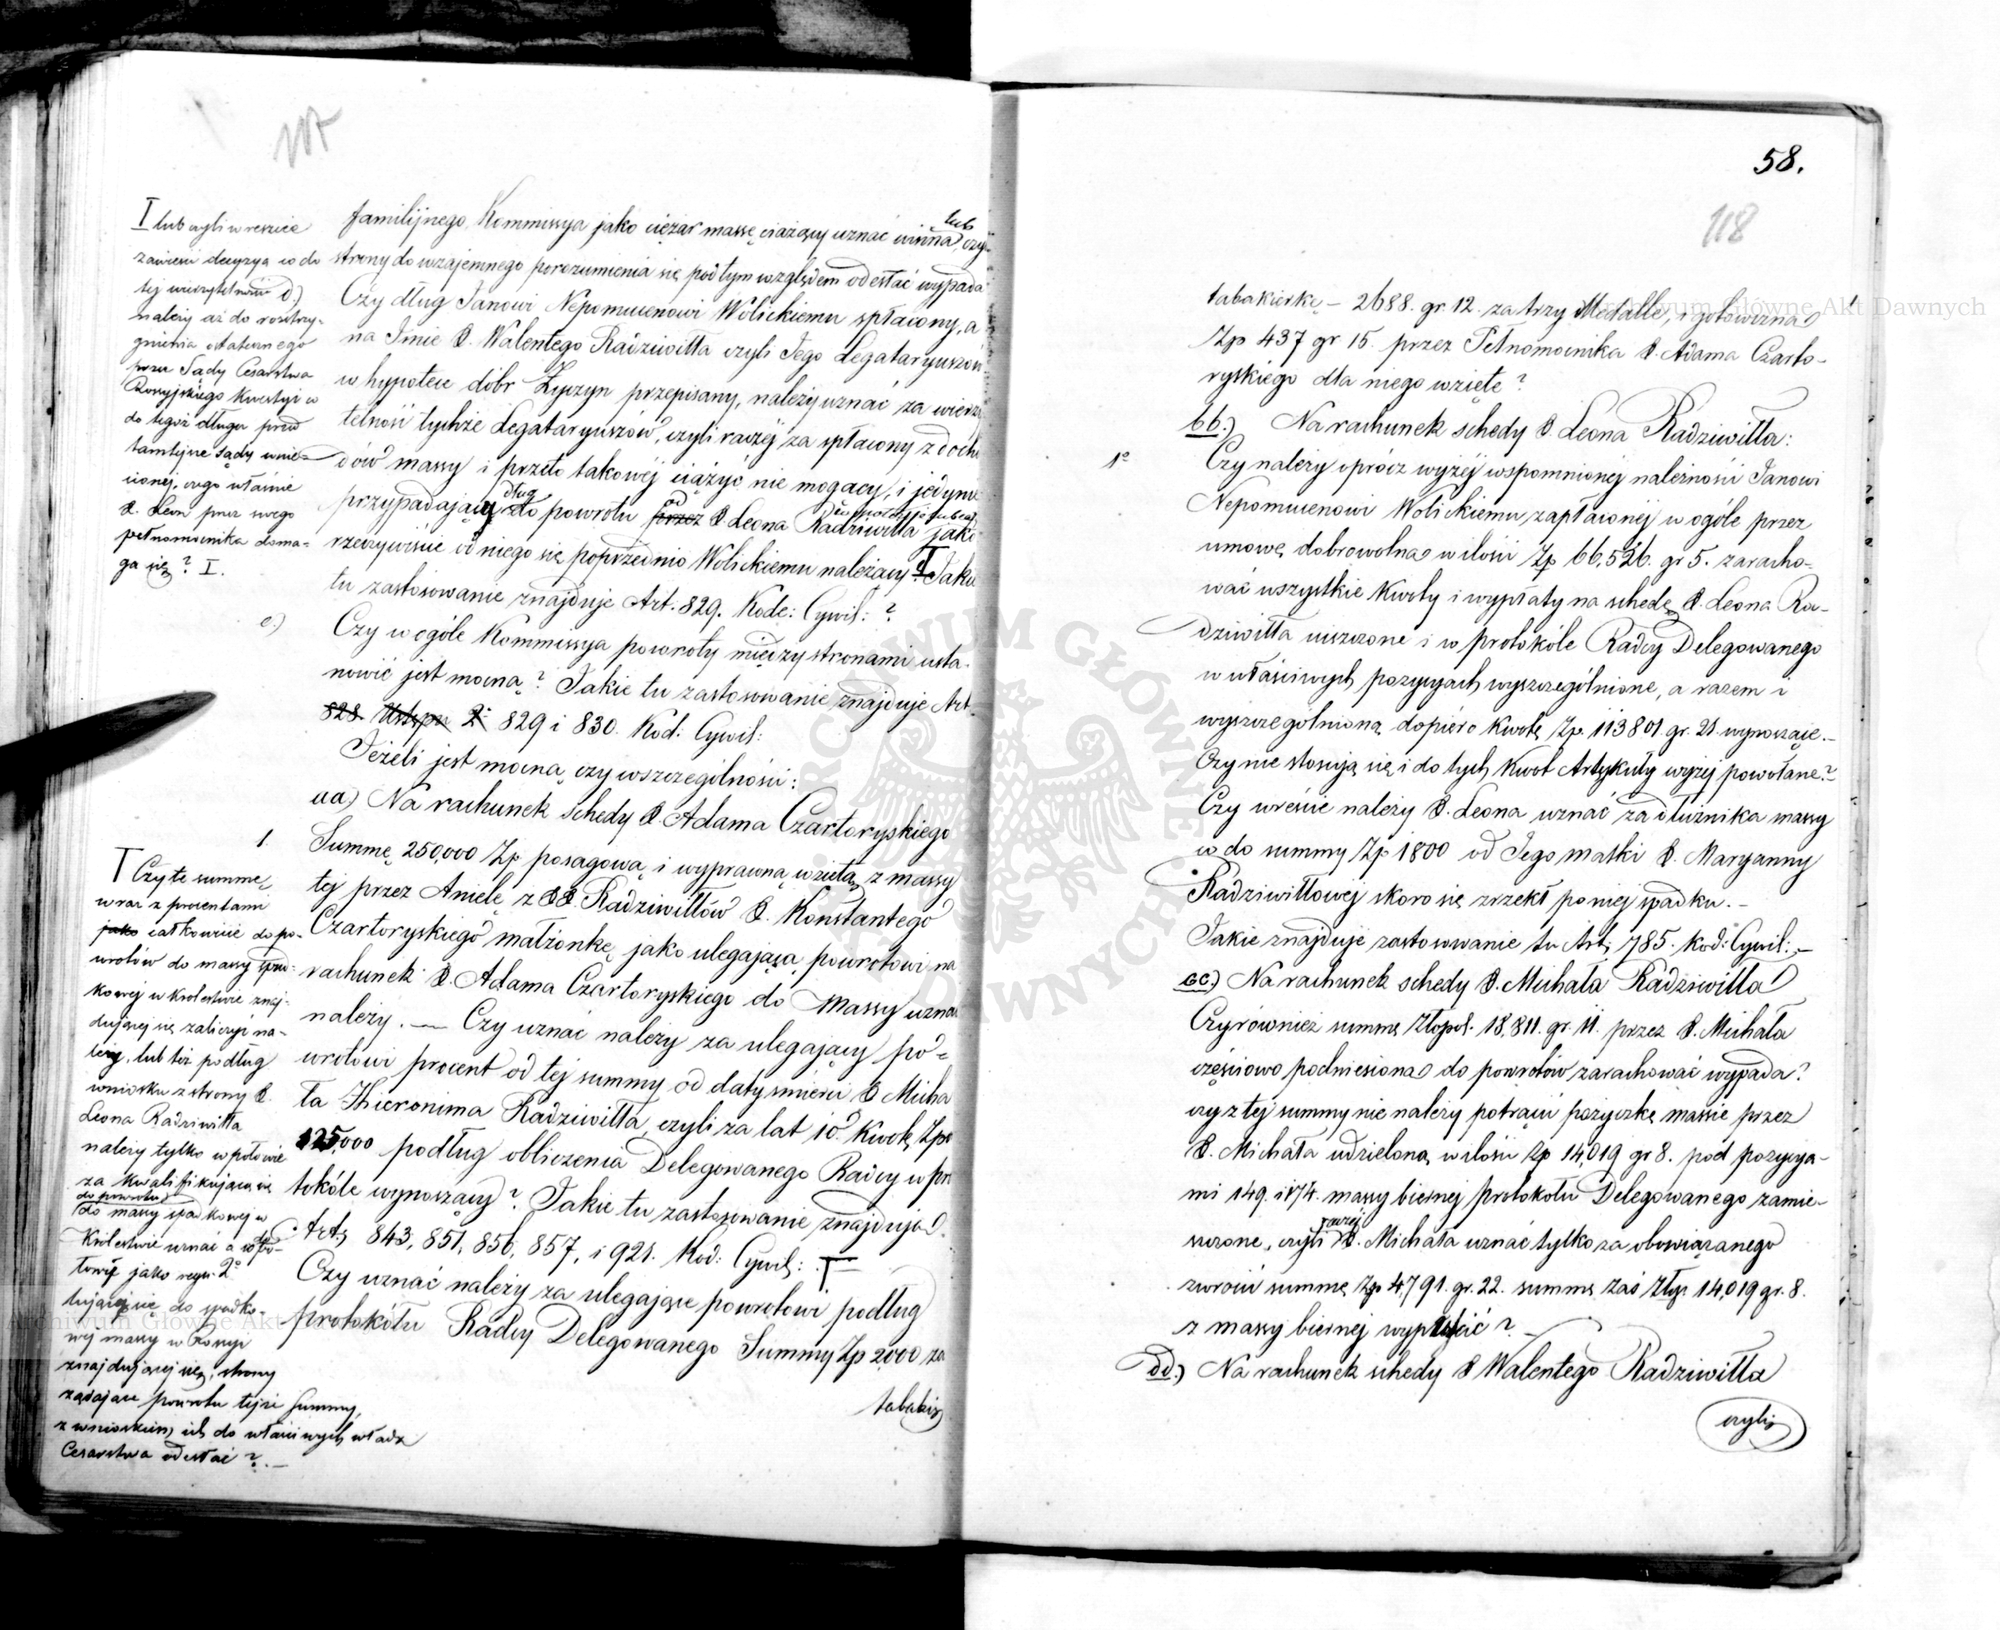 117
familijnego, Kommissya jako ciężar massę ciążący uznać winna, lub czy
strony do wzajemnego porozumienia się pod tym względem odesłać wypada
Czy dług Janowi Nepomucenowi Wolickiemu spłacony, a
na Imie X. Walentego Radziwiłła czyli Jego Legataryuszów
w hypotece dóbr Zyczyn przepisany, należy uznać za wierzy
telność tychże Legataryuszów, czyli raczéj za spłacony z docho
dów massy i przeto takowéj ciążyć nie mogący, i jedynie
przypadający dług do powrotu przez od X. Leona Radziwiłła jako
rzeczywiście od niego się poprzednio Wolickiemu należący? I Jakie
tu zastosowanie znajduje Art: 829. Kode: Cywil: ?
I lub czyli wreszcie
zawiesić decyzyą co do
tej wierzytelności d.)
należy aż do rozstrzy-
gnienia ostatecznego
przez Sądy Cesarstwa
Rossyjskiego kwestyi co
do tegoż długu przed
tamtejsze Sądy wnie-
sionej, czego właśnie
X. Leon przez swego
pełnomocnika doma-
ga się? I.
e.) Czy w ogóle Kommissya powroty między stronami usta-
nowić jest mocną? Jakie tu zastosowanie znajduje Art.
828 Ustępu 2: 829 i 830. Kod: Cywil:
Jeżeli jest mocną czy w szczególności:
aa) Na rachunek schedy X. Adama Czartoryskiego
1. Summę 250,000 Zp posagową i wyprawną wziętą z massy
tej przez Anielę z XX. Radziwiłłów X. Konstantego
Czartoryskiego małżonkę, jako ulegającą powrotowi na
rachunek X. Adama Czartoryskiego do Massy uznać
należy. — Czy uznać należy za ulegający po-
wrotowi procent od tej summy od daty śmierci X Micha
ła Hieronima Radziwiłła, czyli za lat 10. Kwotę Zp
125,000 podług obliczenia Delegowanego Radcy w pro
tokóle wynoszący? Jakie tu zastosowanie znajdują
Art, 843, 851, 856, 857, i 921. Kod: Cywil: T
Czy uznać należy za ulegające powrotowi podług
protokółu Radcy Delegowanego Summy Zp 2,000 za
tabakier
T Czy te summę
wraz z procentami
jako całkowicie do po-
wrotów do massy spad-
kowej w Królestwie znaj-
dującej się zaliczyć na-
leży, lub też podług
wniosku z strony X.
Leona Radziwiłła
należy tylko w połowie
za kwalifikującą się
do powrotu
do massy spadkowej w
Królestwie uznać a co do po-
łowy jako
do spadko-
wej massy w Rossyi
znajdującej się, strony
żądające powrotu tejże Summy,
z wnioskiem ich do właściwych władz
Cesarstwa odesłać? —
58.
118
tabakierkę — 2688. gr. 12. za trzy Medalle, i gotowizną
Zp 437 gr 15. przez Pełnomocnika X. Adama Czarto-
ryskiego dla niego wzięte?
bb.) Na rachunek schedy X. Leona Radziwiłła:
1° Czy należy oprócz wyżéj wspomnionéj należności Janowi
Nepomucenowi Wolickiemu zapłaconéj w ogóle przez
umowę dobrowolną w ilości Zp 66,526. gr 5. zaracho-
wać wszystkie Kwoty i wypłaty na schedę X. Leona Ra-
dziwiłła uiszczone i w protokóle Radcy Delegowanego
w właściwych pozycyach wyszczególnione, a razem i
wyszczególnioną dopiéro kwotę Zp. 113801. gr. 21. wynoszące. —
Czy nie stosują się i do tych Kwot Artykuły wyżej powołane?
Czy wreście należy X. Leona uznać za dłużnika massy
co do summy Zp 1800 od Jego matki X. Maryanny
Radziwiłłowej skoro się zrzekł po niej spadku. —
Jakie znajduje zastosowanie tu Art, 785. Kod: Cywil: —
cc.) Na rachunek schedy X. Michała Radziwiłła
Czy również summę Złopol. 18,811. gr. 11. przez X. Michała
częściowo podniesioną do powrotów zarachować wypada?
czy z tej summy nie należy potrącić pożyczkę massie przez
X. Michała udzieloną w ilości Zp 14,019 gr 8. pod pozycya-
mi 149. i 174. massy biernej protokołu Delegowanego zamie-
szczone, czyli raczéj X. Michała uznać tylko za obowiązanego
zwrócić summę Zp 4,791. gr. 22. summę zaś Złp. 14,019 gr. 8.
z massy biernej wypuścić? —
dd.) Na rachunek schedy X Walentego Radziwiłła
czyli
Archiwum Główne Akt Dawnych